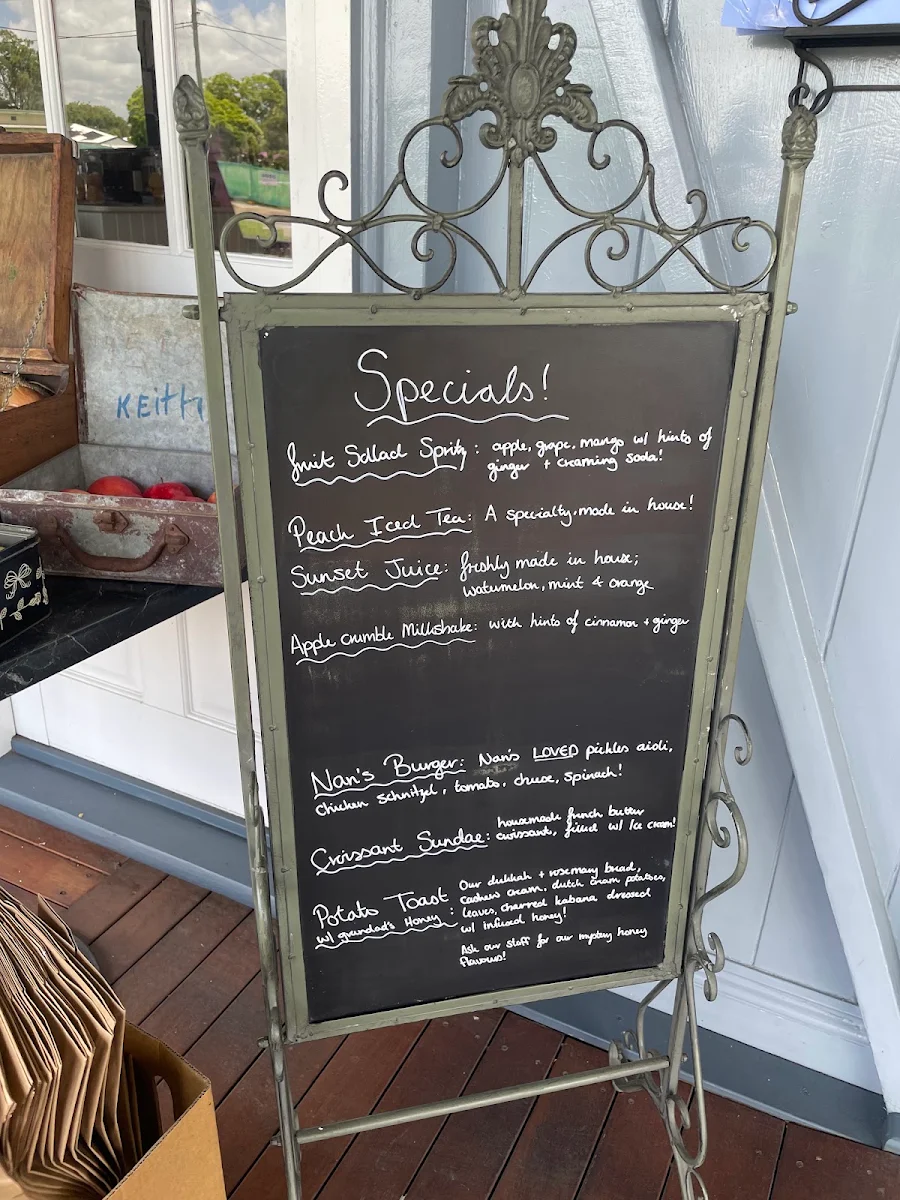 KEITH
Specials!
fruit Sallad Spritz: apple, grape, mango w/ hints of
ginger + creaming soda!
Peach Iced Tea: A specialty, made in house!
Sunset Juice: freshly made in house;
watermelon, mint & orange
Apple crumble Milkshake: with hints of cinnamon + ginger
Nan's Burger: Nan's LOVED pickles aioli,
chicken schnitzel, tomato, cheese, spinach!
Croissant Sundae: housemade french butter
croissant, filled w/ Ice cream!
Potato Toast
w/ grandad's Honey:
Our dukkah + rosemary bread,
cashew cream, dutch cream potatoes,
leaves, charred kabana dressed
w/ infused honey!
Ask our staff for our mystery honey
flavours!